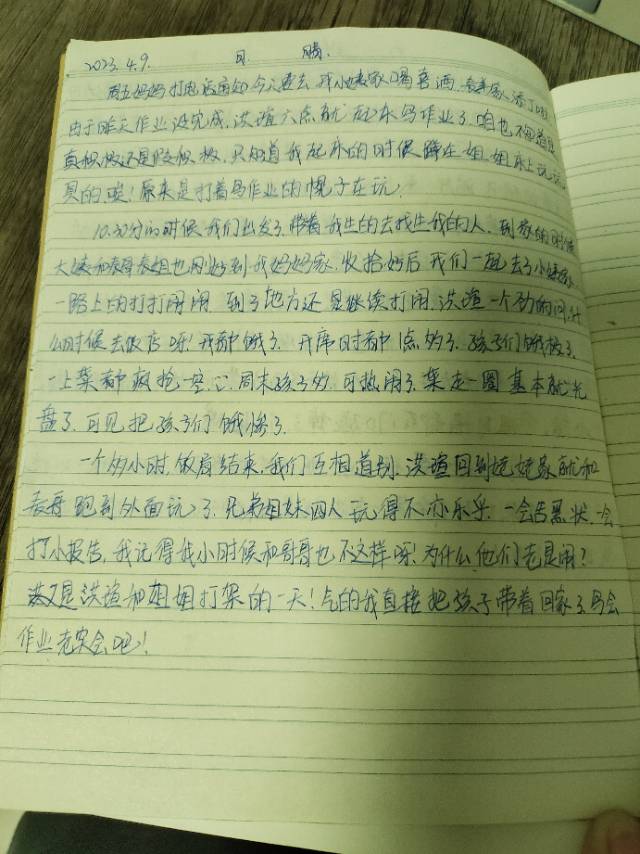 2023.4.9. 日 晴.
周五妈妈打电话通知今天要去我小姨家喝喜酒.表弟家添丁啦
由于昨天作业没完成.洪瑄六点就起床写作业了.咱也不知道是
真积极还是假积极.只知道我起床的时候跟在姐姐床上玩玩
具的唉!原来是打着写作业的幌子在玩.
10.30分的时候我们出发了.带着我生的去找生我的人.到家的时候
大姨和表哥表姐也刚好到我妈妈家.收拾好后我们一起去了小姨家.
一路上的打打闹闹.到了地方还是继续打闹.洪瑄一个劲的问.什
么时候去饭店呀!我都饿了.开席时都1点多了.孩子们饿极了.
一上菜都疯抢一空.周末孩子多.可热闹了.菜走一圈基本就光
盘了.可见把孩子们饿惨了.
一个多小时.饭局结束.我们互相道别.洪瑄回到姥姥家就和
表哥跑到外面玩了.兄弟姐妹四人玩得不亦乐乎.一会告黑状.一会
打小报告.我记得我小时候和哥哥也不这样呀!为什么他们老是闹?
又是洪瑄和姐姐打架的一天!气的我直接把孩子带着回家了.写会
作业老实会吧!